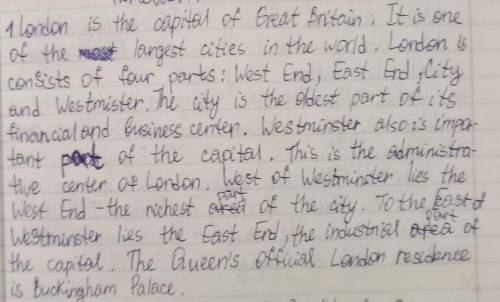 1 London is the capital of Great Britain. It is one
of the most largest cities in the world. London is
consists of four parts: West End, East End, City
and Westmister. The city is the oldest part of its
financial and business center. Westminster also is impor-
tant part of the capital. This is the administra-
tive center of London. West of Westminster lies the
West End - the richest area part of the city. To the East of
Westminster lies the East End, the industrial area part of
the capital. The Queen's official London residence
is Buckingham Palace.